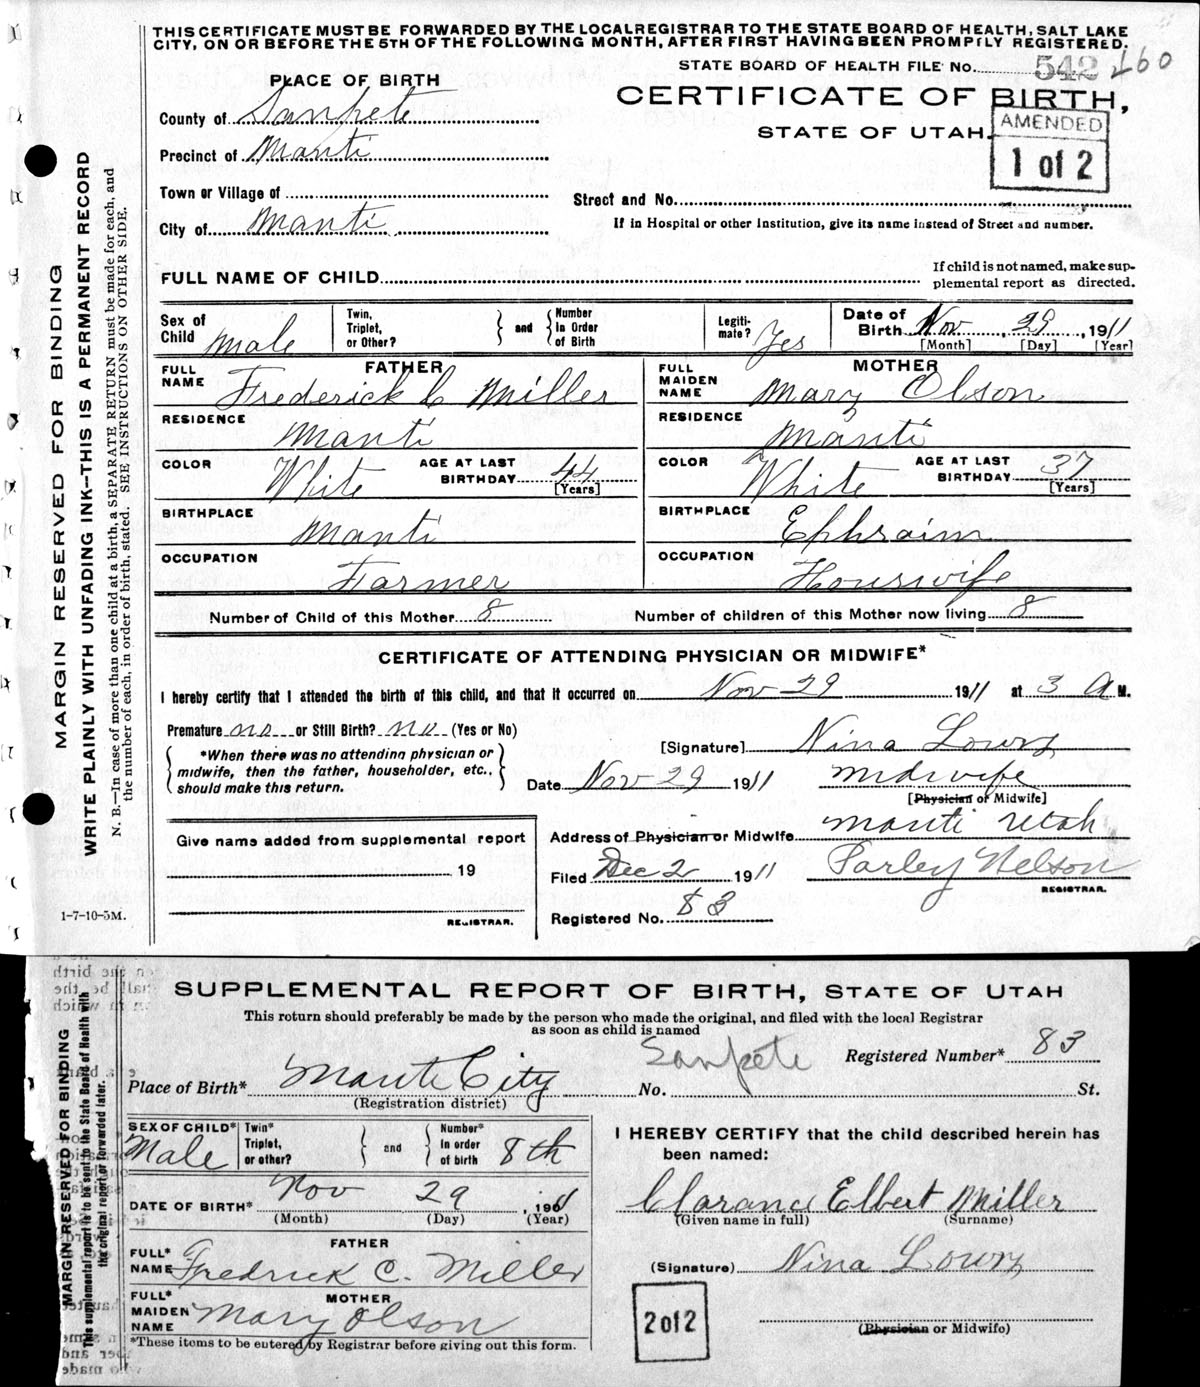 THIS CERTIFICATE MUST BE FORWARDED BY THE LOCAL REGISTRAR TO THE STATE BOARD OF HEALTH, SALT LAKE
CITY, ON OR BEFORE THE 5TH OF THE FOLLOWING MONTH, AFTER FIRST HAVING BEEN PROMPTLY REGISTERED.
STATE BOARD OF HEALTH FILE No. 542 160
PLACE OF BIRTH
CERTIFICATE OF BIRTH,
STATE OF UTAH.
AMENDED
1 of 2
County of Sanpete
Precinct of Manti
Town or Village of
Street and No.
City of Manti
If in Hospital or other Institution, give its name instead of Street and number.
FULL NAME OF CHILD
If child is not named, make sup-
plemental report as directed.
Sex of Child Male Twin, Triplet, or Other? and Number in Order of Birth Legiti-mate? Yes Date of Birth Nov, 29, 1911
[Month] [Day] [Year]
FATHER
FULL NAME Frederick C Miller
RESIDENCE Manti
COLOR White AGE AT LAST BIRTHDAY 44 [Years]
BIRTHPLACE Manti
OCCUPATION Farmer
MOTHER
FULL MAIDEN NAME Mary Olson
RESIDENCE Manti
COLOR White AGE AT LAST BIRTHDAY 37 [Years]
BIRTHPLACE Ephraim
OCCUPATION Houswife
Number of Child of this Mother 8 Number of children of this Mother now living 8
CERTIFICATE OF ATTENDING PHYSICIAN OR MIDWIFE*
I hereby certify that I attended the birth of this child, and that it occurred on Nov 29 1911 at 3 A M.
Premature no or Still Birth? no (Yes or No)
*When there was no attending physician or
midwife, then the father, householder, etc.,
should make this return.
[Signature] Nina Lowry
Date Nov 29 1911 Midwife
[Physician or Midwife]
Give name added from supplemental report
19
REGISTRAR.
Address of Physician or Midwife Manti Utah
Filed Dec 2 1911 Parley Nelson
REGISTRAR.
Registered No. 83
MARGIN RESERVED FOR BINDING
WRITE PLAINLY WITH UNFADING INK—THIS IS A PERMANENT RECORD
N. B.—In case of more than one child at a birth, a SEPARATE RETURN must be made for each, and
the number of each, in order of birth, stated. SEE INSTRUCTIONS ON OTHER SIDE.
1-7-10-5M.
SUPPLEMENTAL REPORT OF BIRTH, STATE OF UTAH
This return should preferably be made by the person who made the original, and filed with the local Registrar
as soon as child is named
Sanpete Registered Number* 83
Place of Birth* Manti City No. St.
(Registration district)
SEX OF CHILD* Male Twin* Triplet, or other? and Number* in order of birth 8th
DATE OF BIRTH* Nov 29, 1911
(Month) (Day) (Year)
FATHER
FULL* NAME Fredrick C. Miller
MOTHER
FULL* MAIDEN NAME Mary Olson
*These items to be entered by Registrar before giving out this form.
I HEREBY CERTIFY that the child described herein has
been named:
Clarance Elbert Miller
(Given name in full) (Surname)
(Signature) Nina Lowry
(Physician or Midwife)
2 of 2
MARGIN RESERVED FOR BINDING
This supplemental report is to be sent to the State Board of Health with
the original report or forwarded later.